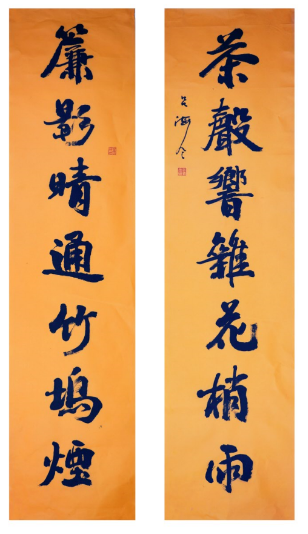 茶聲響雜花梢雨
簾影晴通竹塢煙